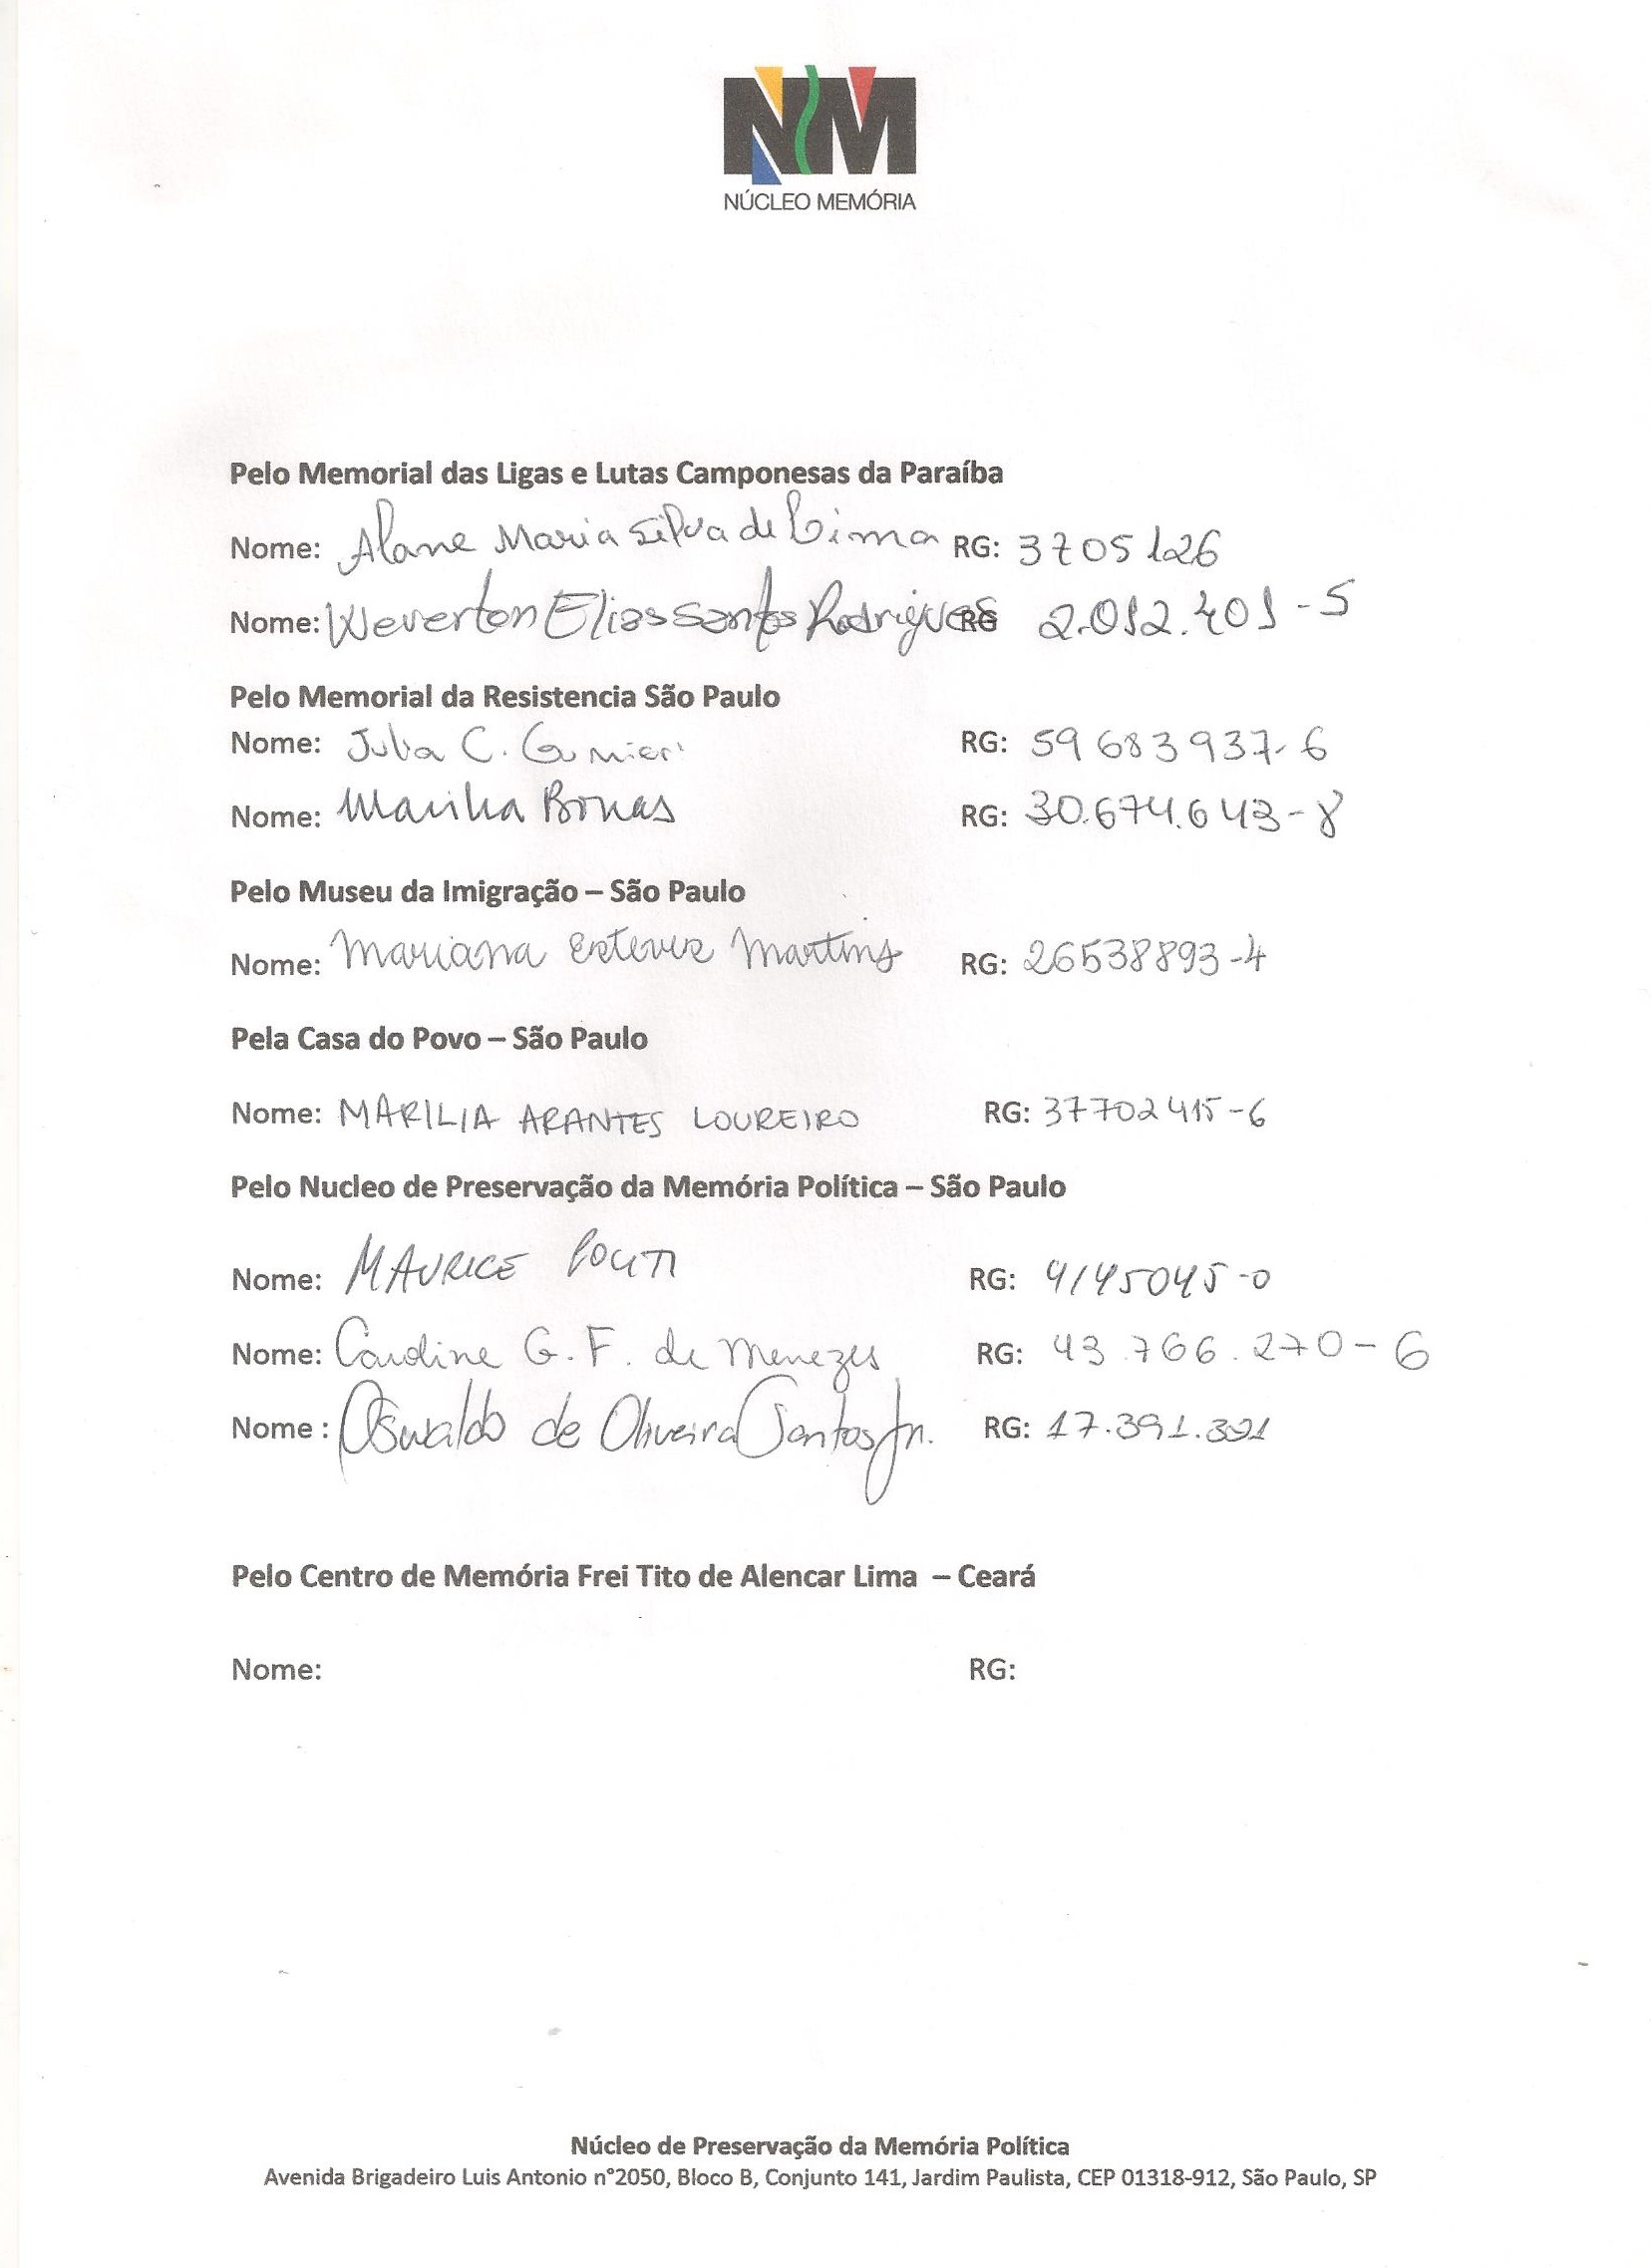 NM
NÚCLEO MEMÓRIA
Pelo Memorial das Ligas e Lutas Camponesas da Paraíba
Nome: Alane Maria Silva de Lima RG: 3705126
Nome: Weverton Elias Santos Rodrigues RG 2.012.401-5
Pelo Memorial da Resistencia São Paulo
Nome: Julia C. RG: 59683937-6
Nome: Marilia Bonas RG: 30.674.643-8
Pelo Museu da Imigração – São Paulo
Nome: Mariana Esteves Martins RG: 26538893-4
Pela Casa do Povo – São Paulo
Nome: MARILIA ARANTES LOUREIRO RG: 37702415-6
Pelo Nucleo de Preservação da Memória Política – São Paulo
Nome: MAURICE POLITI RG:
Nome: Caroline G. F. de Menezes RG: 43.766.270-6
Nome : Oswaldo de Oliveira Santos Jr. RG: 17.391.391
Pelo Centro de Memória Frei Tito de Alencar Lima – Ceará
Nome: RG:
Núcleo de Preservação da Memória Política
Avenida Brigadeiro Luis Antonio n°2050, Bloco B, Conjunto 141, Jardim Paulista, CEP 01318-912, São Paulo, SP